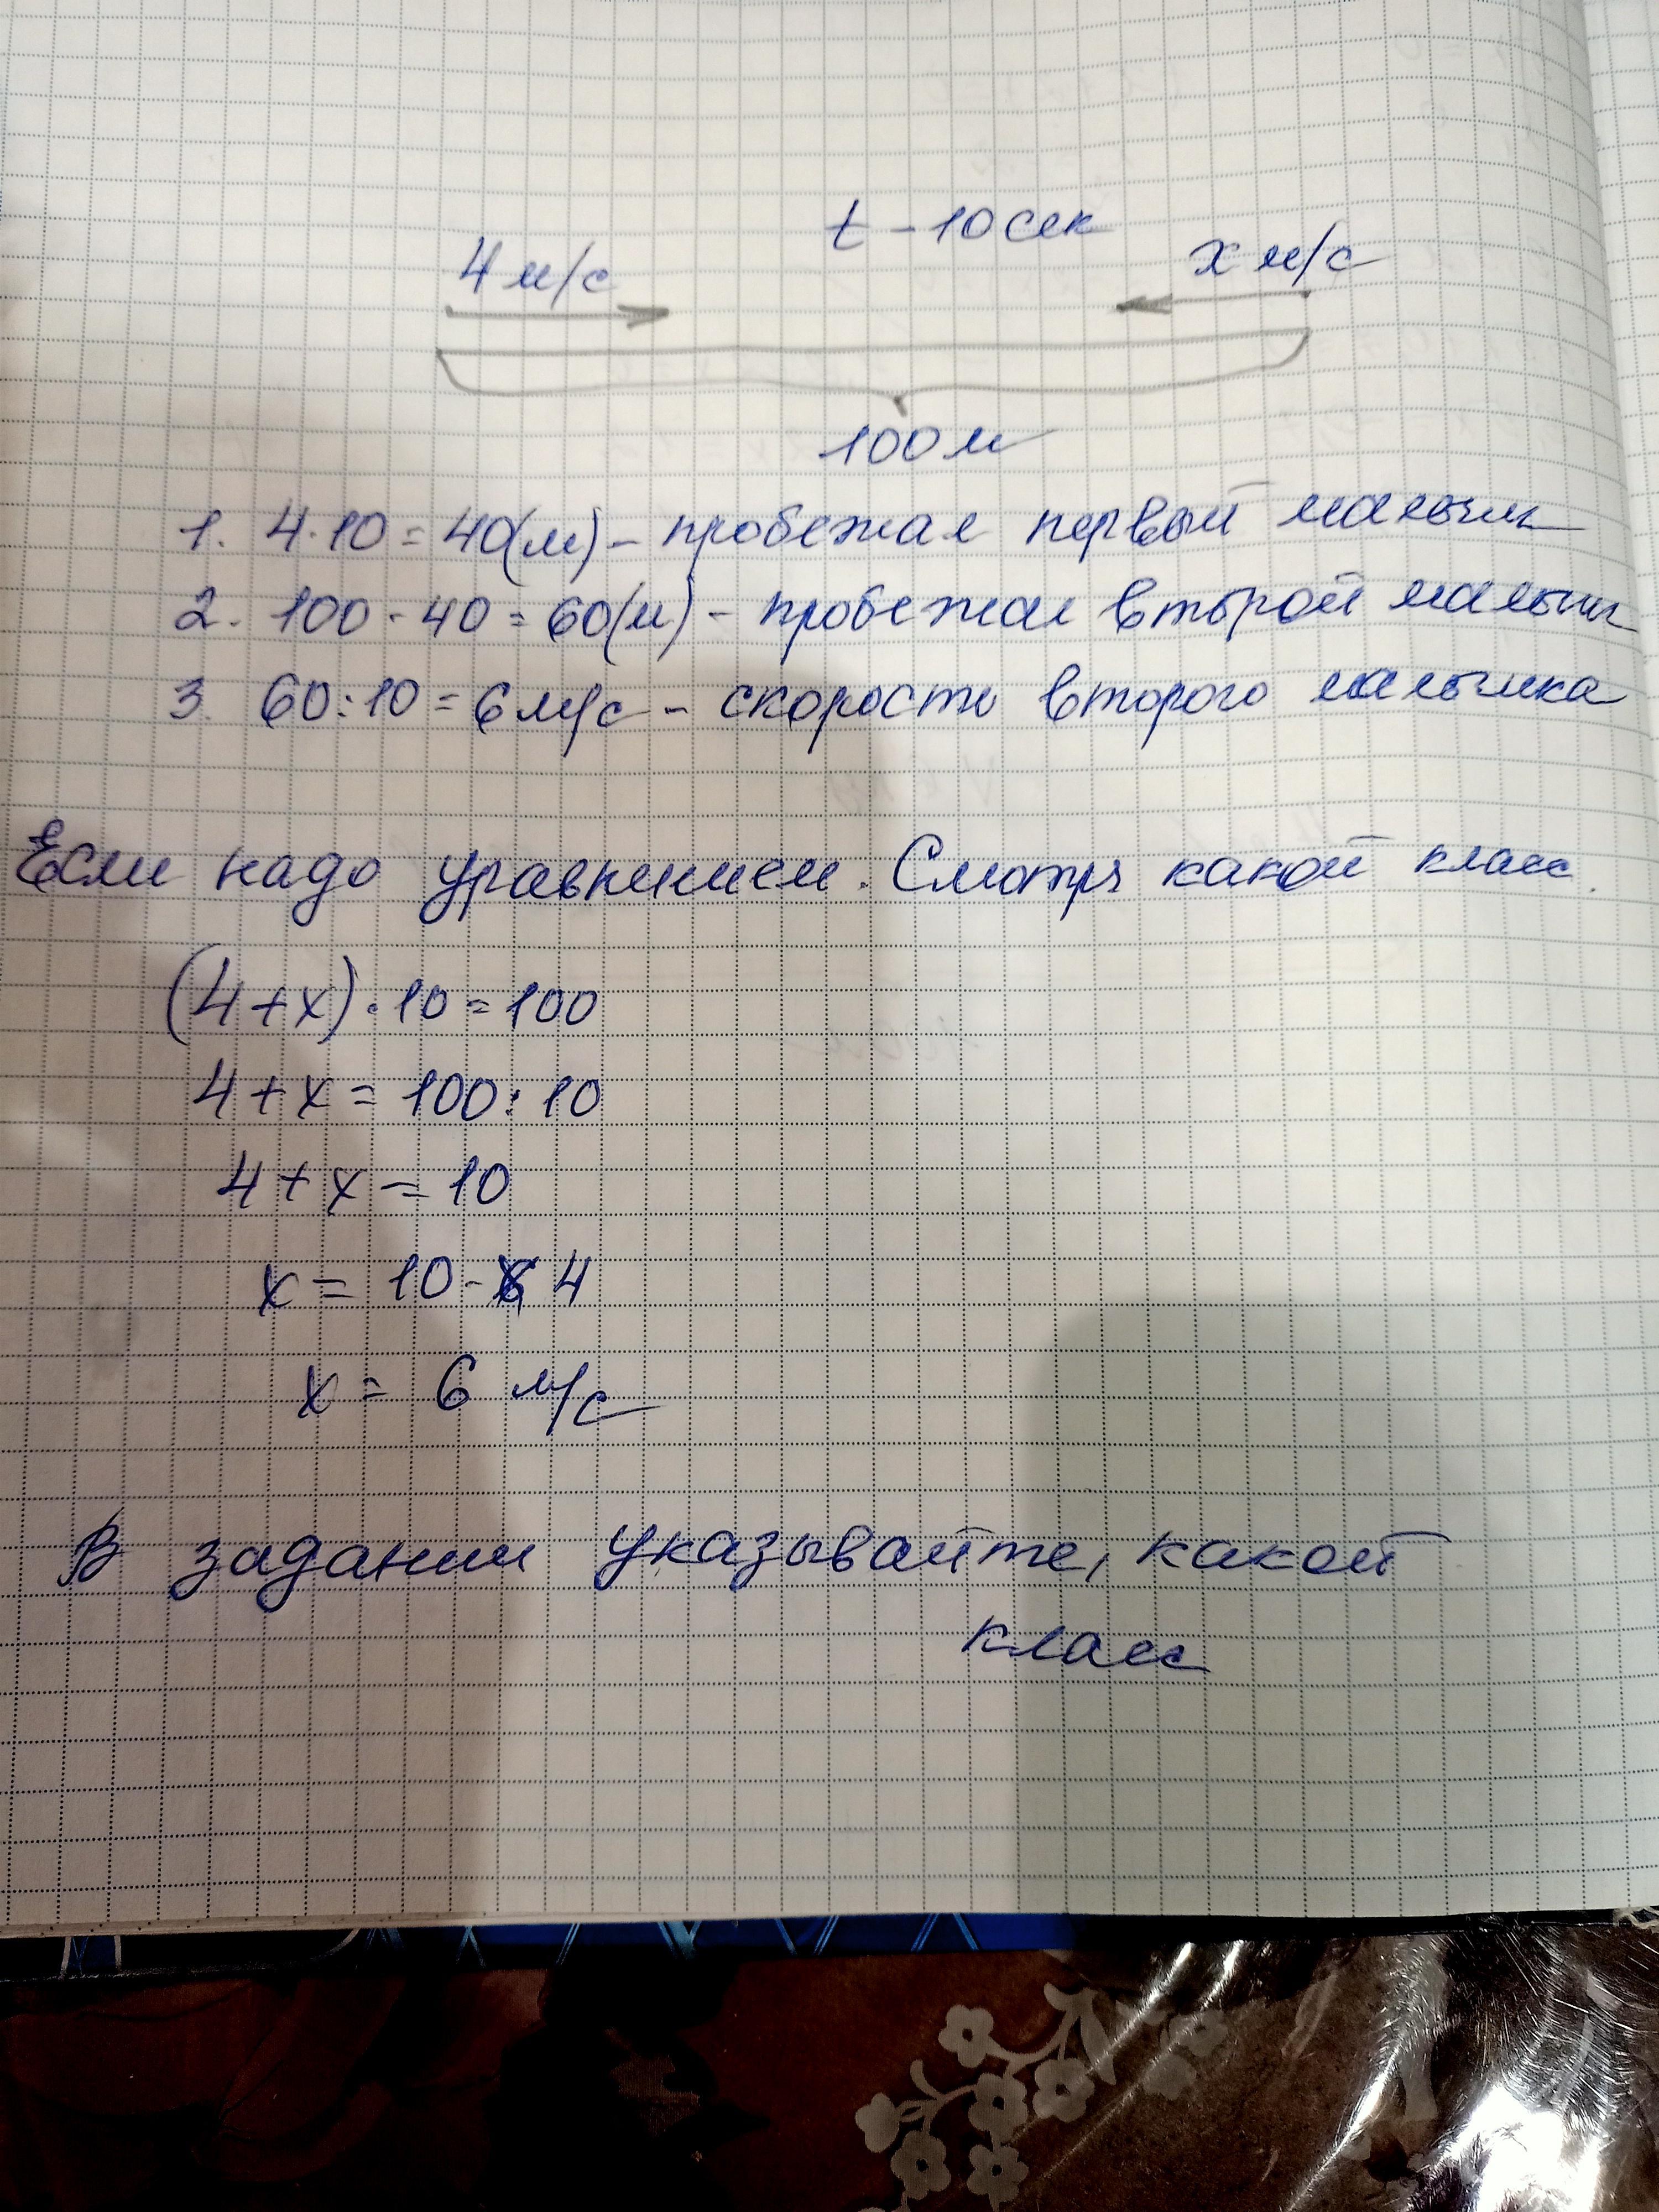 t - 10 сек
4 м/с
x м/с
100 м
1. 4·10 = 40(м) - пробежал первый мальчик
2. 100 - 40 = 60(м) - пробежал второй мальчик
3. 60:10 = 6 м/с - скорость второго мальчика
Если надо уравнением. Смотря какой класс.
(4+x)·10 = 100
4+x = 100:10
4+x = 10
x = 10 - 4
x = 6 м/с
В задании указывайте, какой
класс